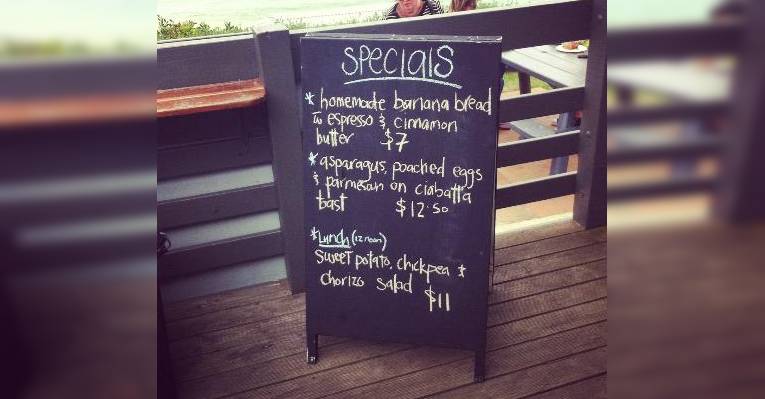 SPECIALS
* homemade banana bread
w espresso & cinnamon
butter $7
* asparagus, poached eggs
& parmesan on ciabatta
toast $12.50
* Lunch (12 noon)
Sweet potato, chickpea &
chorizo salad $11